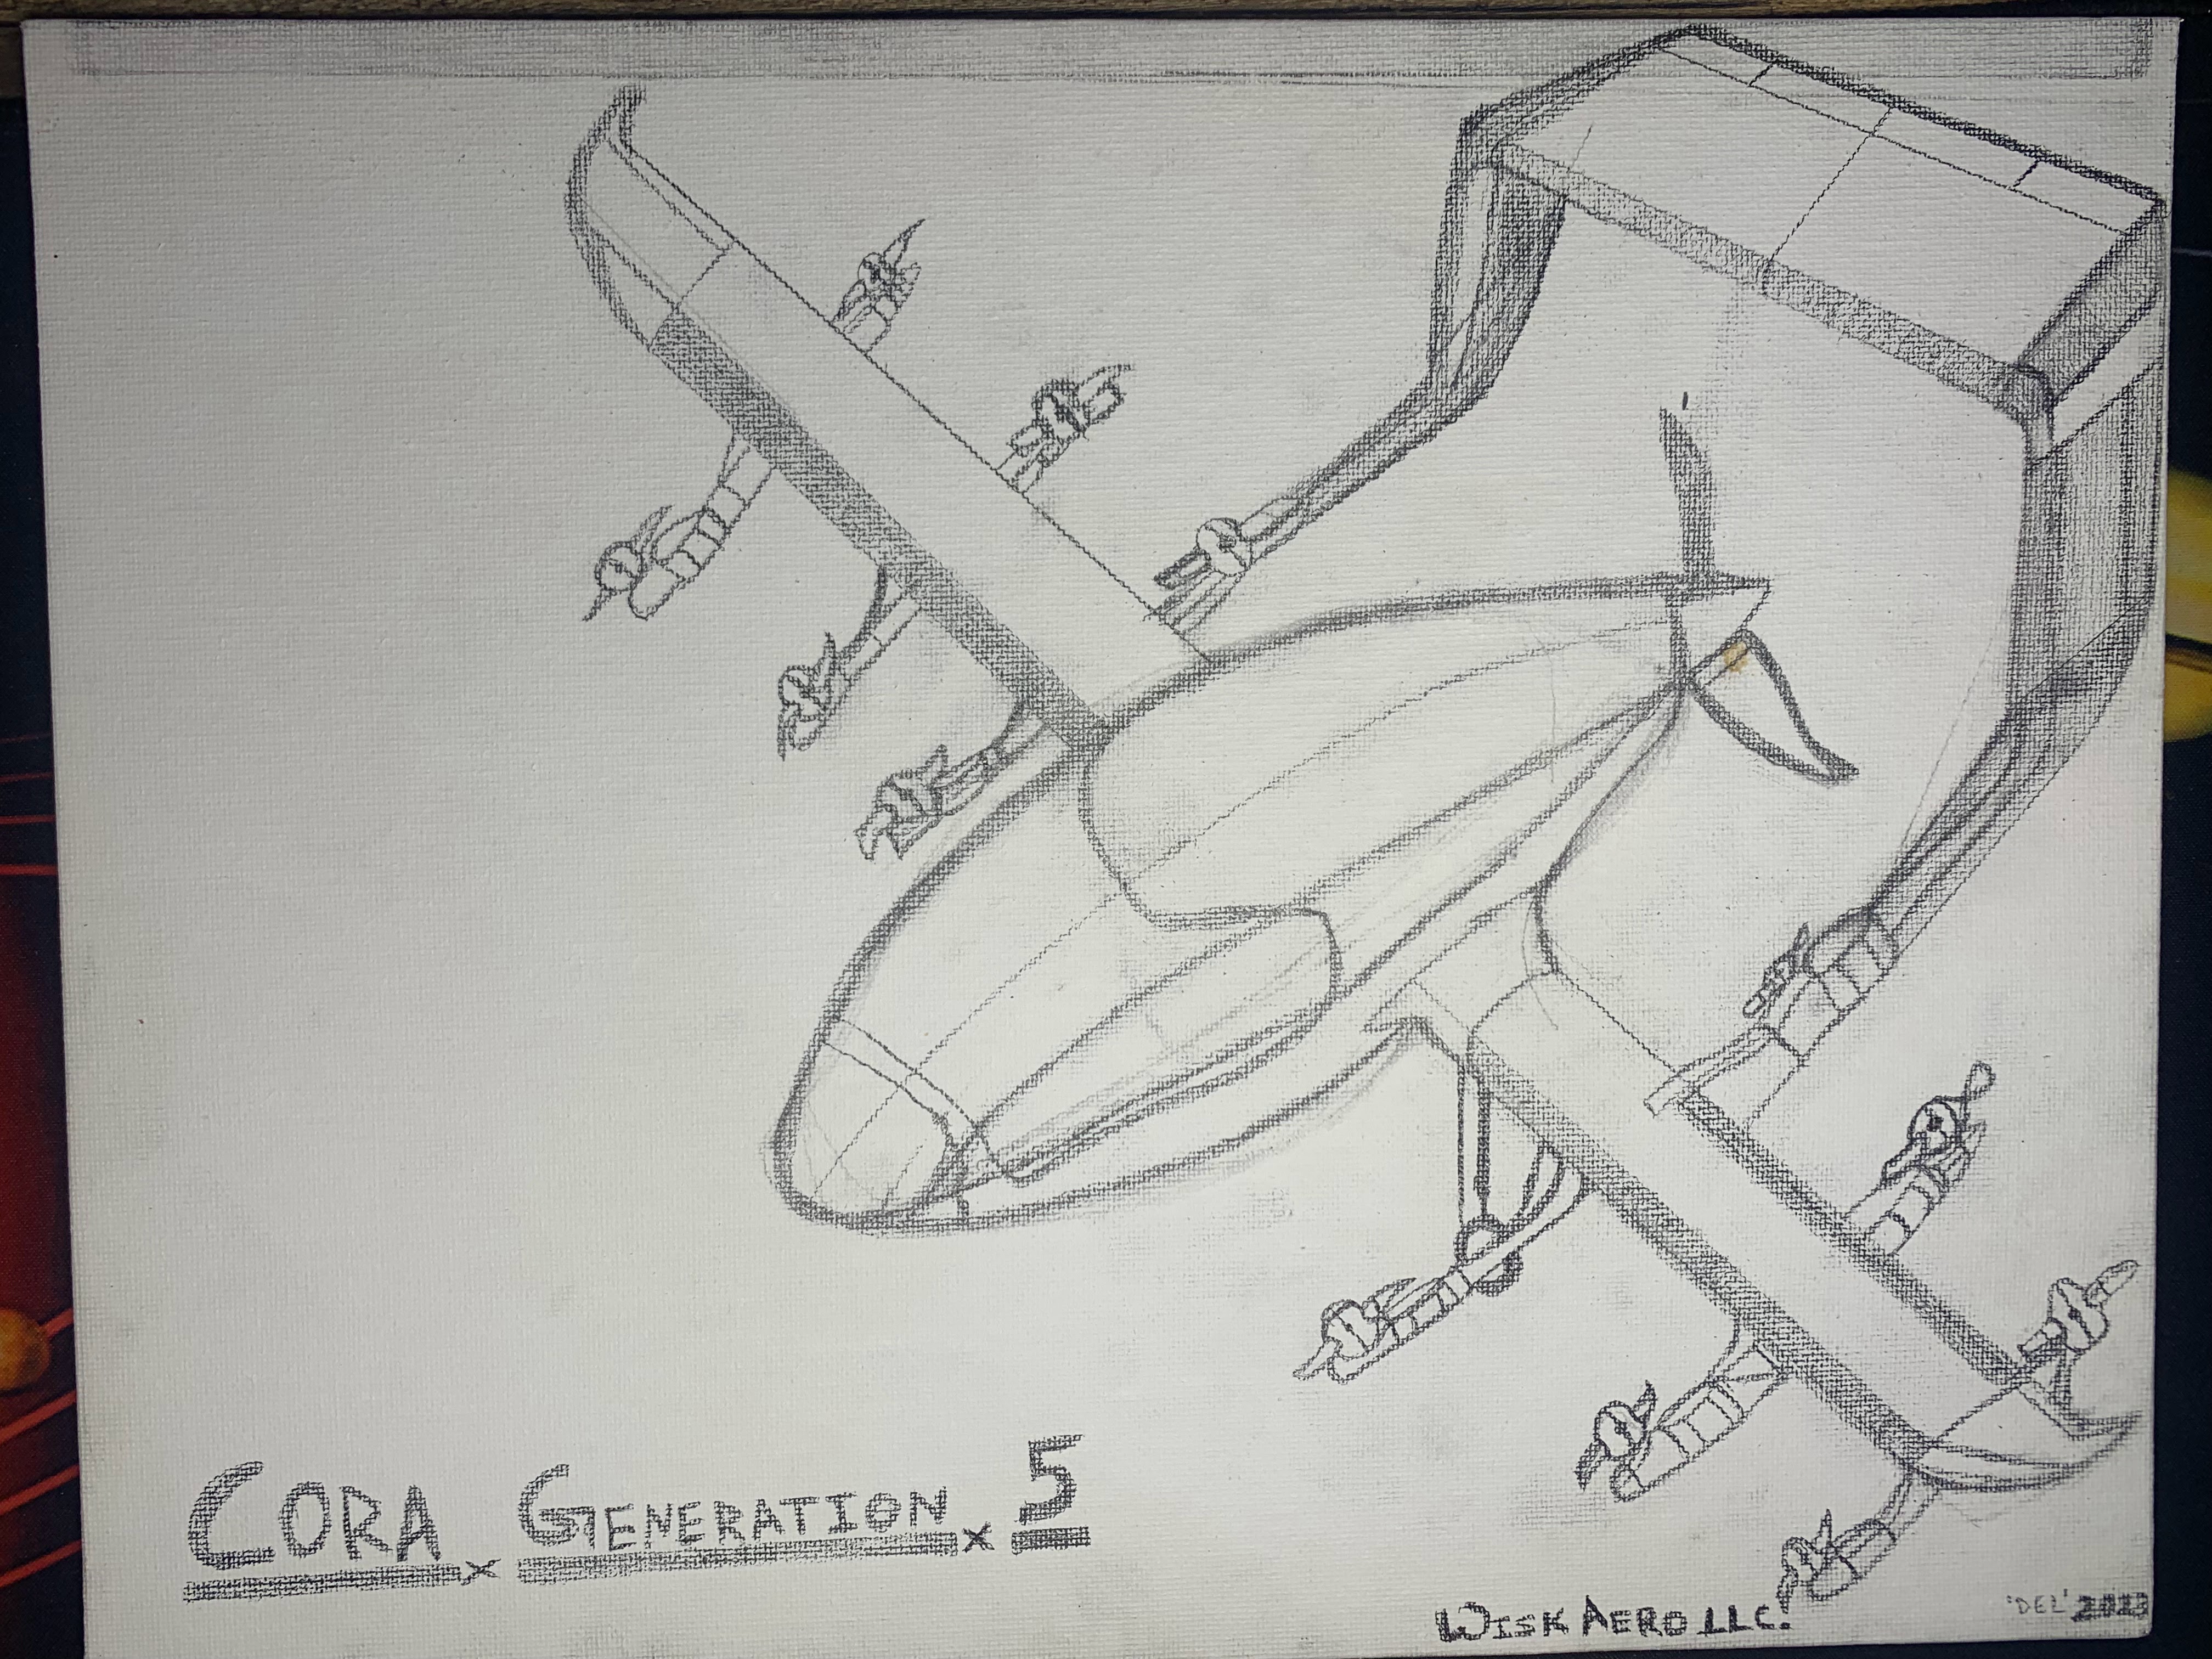 CORA x GENERATION x 5
WISK AERO LLC.
'DEL' 2023